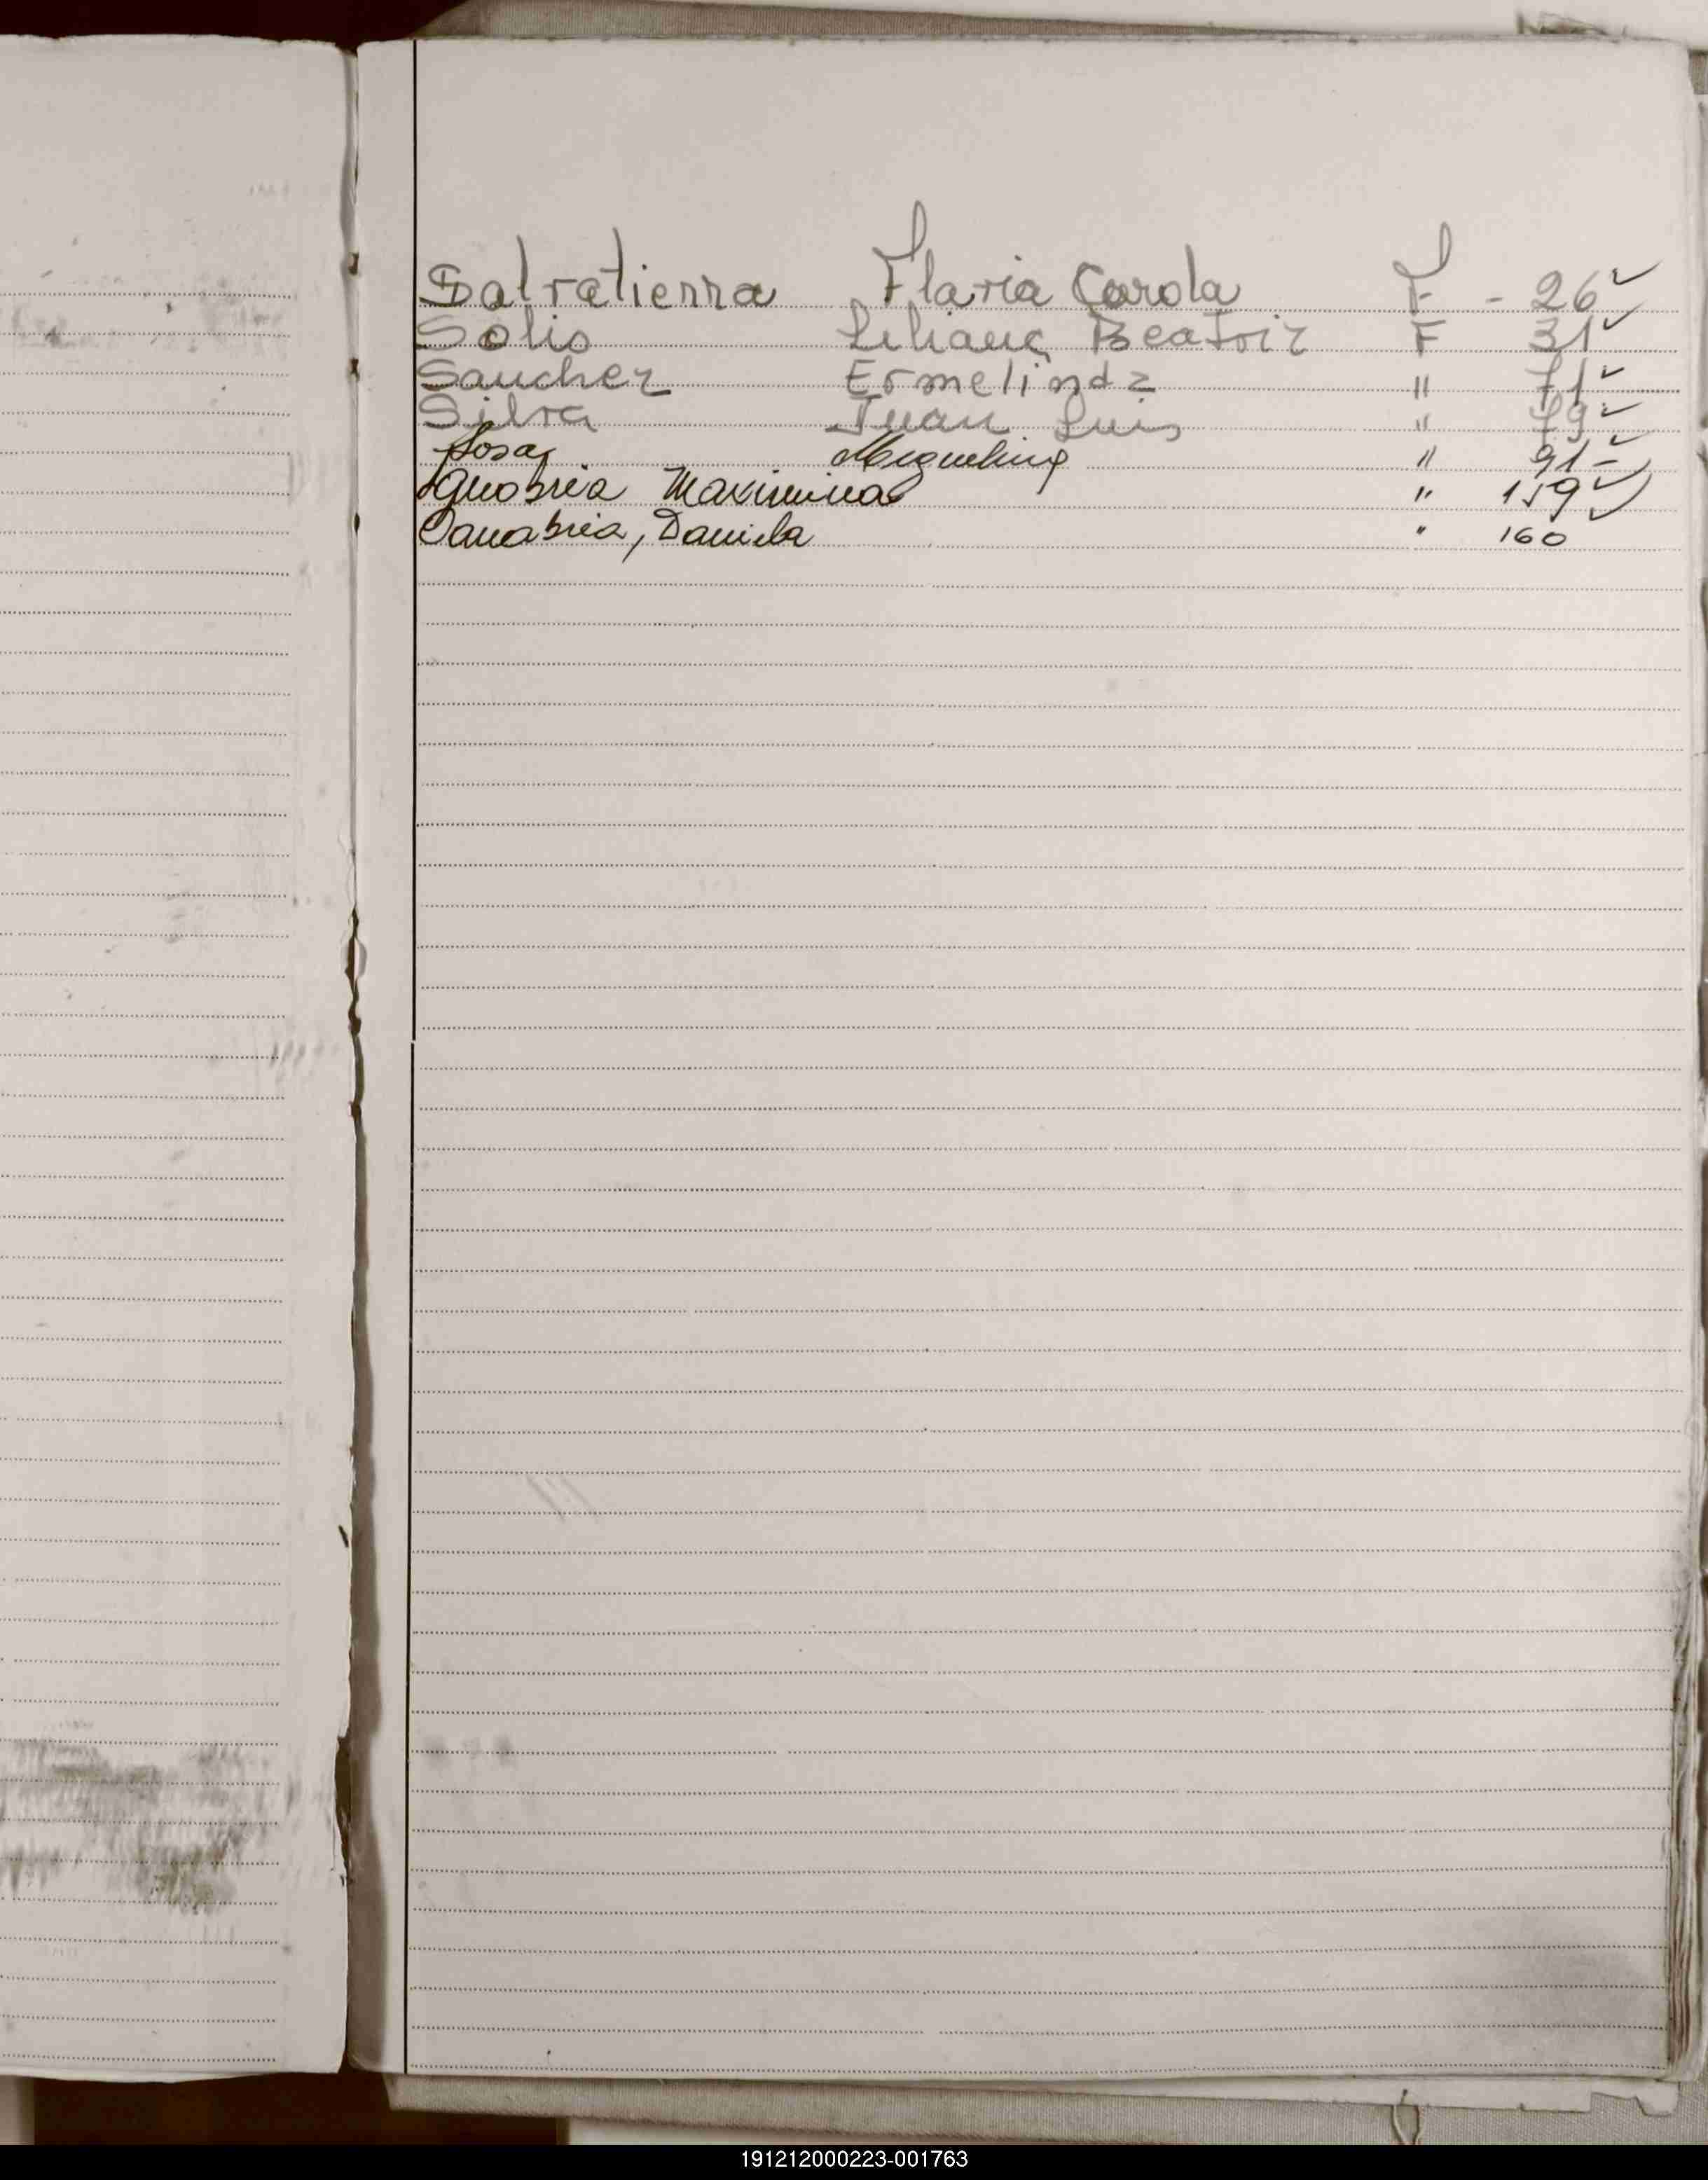 Salvatierra Flavia Carola F - 26 ✓
Solis Liliana Beatriz F 31 ✓
Sanchez Ermelinda " 71 ✓
Silva Juan Luis " 79 ✓
Sosa Miguelina " 91 - ✓
Sanabria Maximina " 159 ✓
Sanabria, Daniela " 160 ✓
191212000223-001763